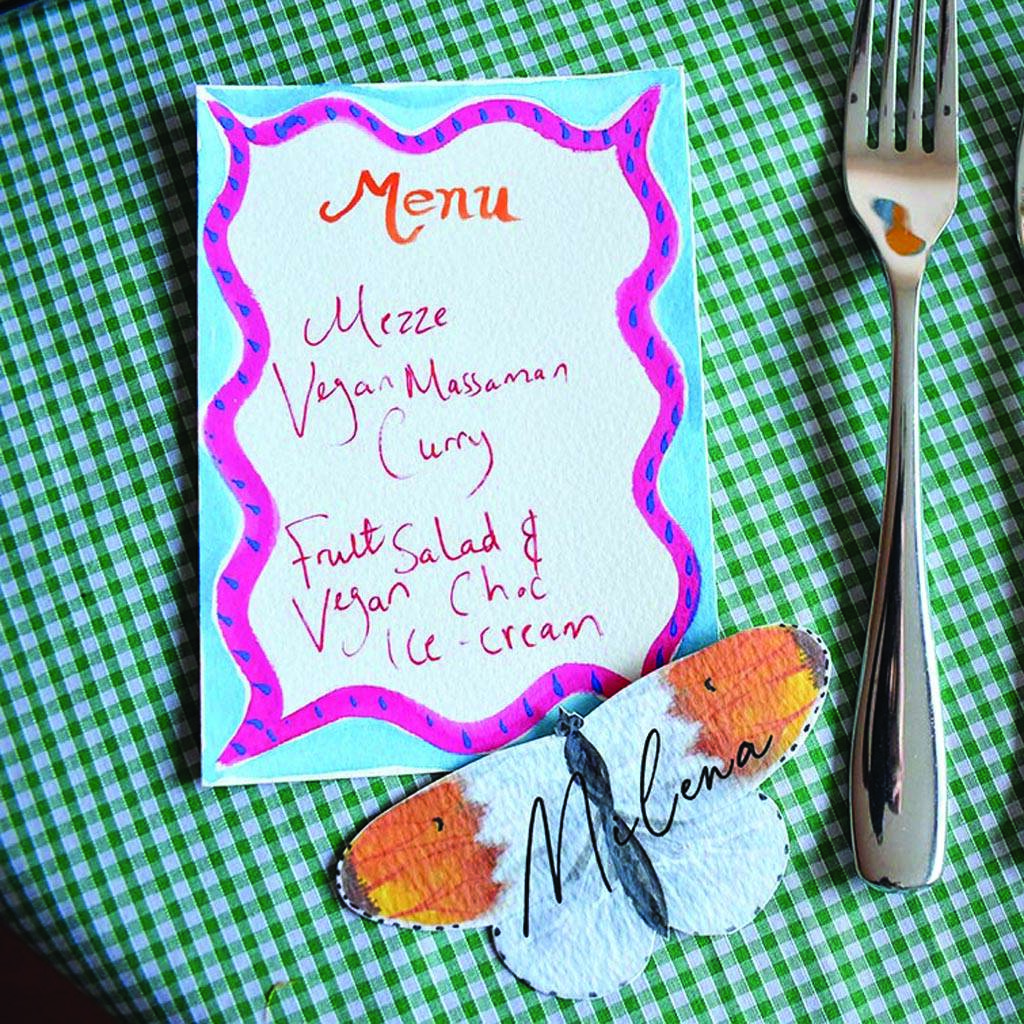 Menu
Mezze
Vegan Massaman
Curry
Fruit Salad &
Vegan Choc
Ice-cream
Milena